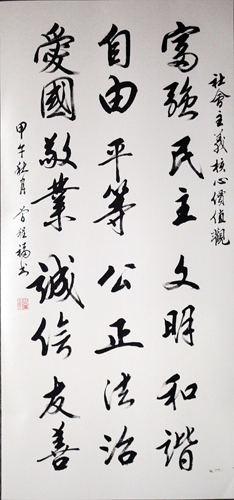 社會主義核心價值觀
富強民主文明和諧
自由平等公正法治
愛國敬業誠信友善
甲午秋月曾經福书